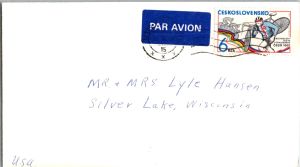 PAR AVION
15
x
ČESKOSLOVENSKO
6 Kčs
MR + MRS Lyle Hansen
Silver Lake, Wisconsin
USA